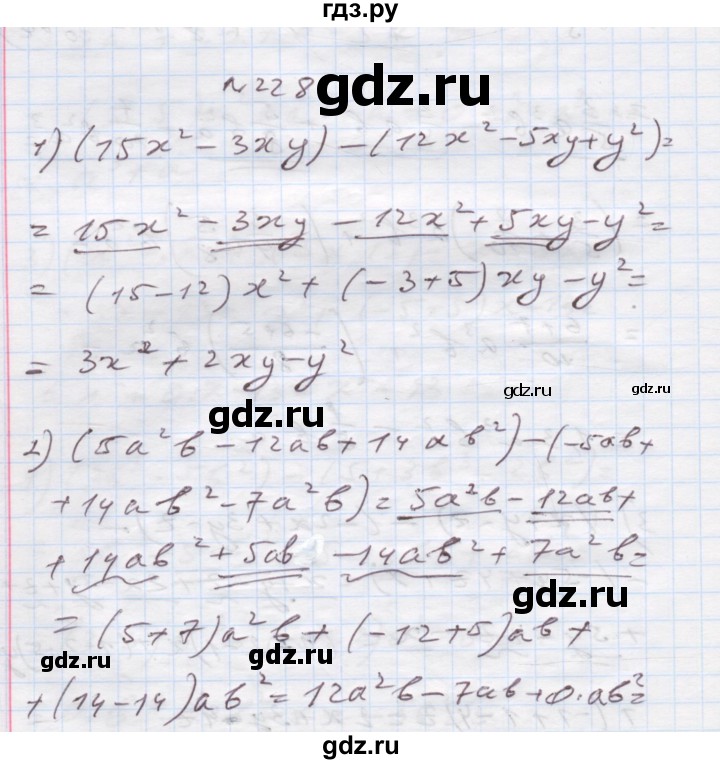 гдз.ру
№228
gdz.ru
1) (15x² - 3xy) - (12x² - 5xy + y²) =
= 15x² - 3xy - 12x² + 5xy - y² =
= (15 - 12)x² + (-3 + 5)xy - y² =
= 3x² + 2xy - y²
gdz.ru
gdz.ru
gdz.ru
2) (5a²b - 12ab + 14ab²) - (-5ab +
+ 14ab² - 7a²b) = 5a²b - 12ab +
+ 14ab² + 5ab - 14ab² + 7a²b =
gdz.ru
= (5 + 7)a²b + (-12 + 5)ab +
gdz.ru
gdz.ru
+ (14 - 14)ab² = 12a²b - 7ab + 0·ab² =
gdz.ru